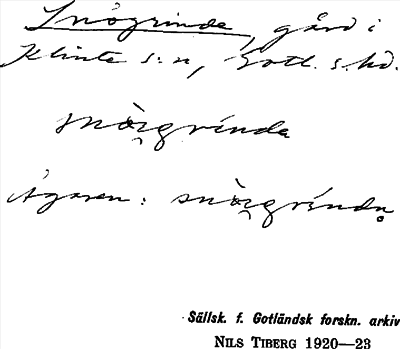 Snögrinde, gård i
Klinte s:n, Gotl. s. hd.
snö̀i̯grínda
Ägaren: snö̀i̯gríndn̥
Sällsk. f. Gotländsk forskn. arkiv
NILS TIBERG 1920—23